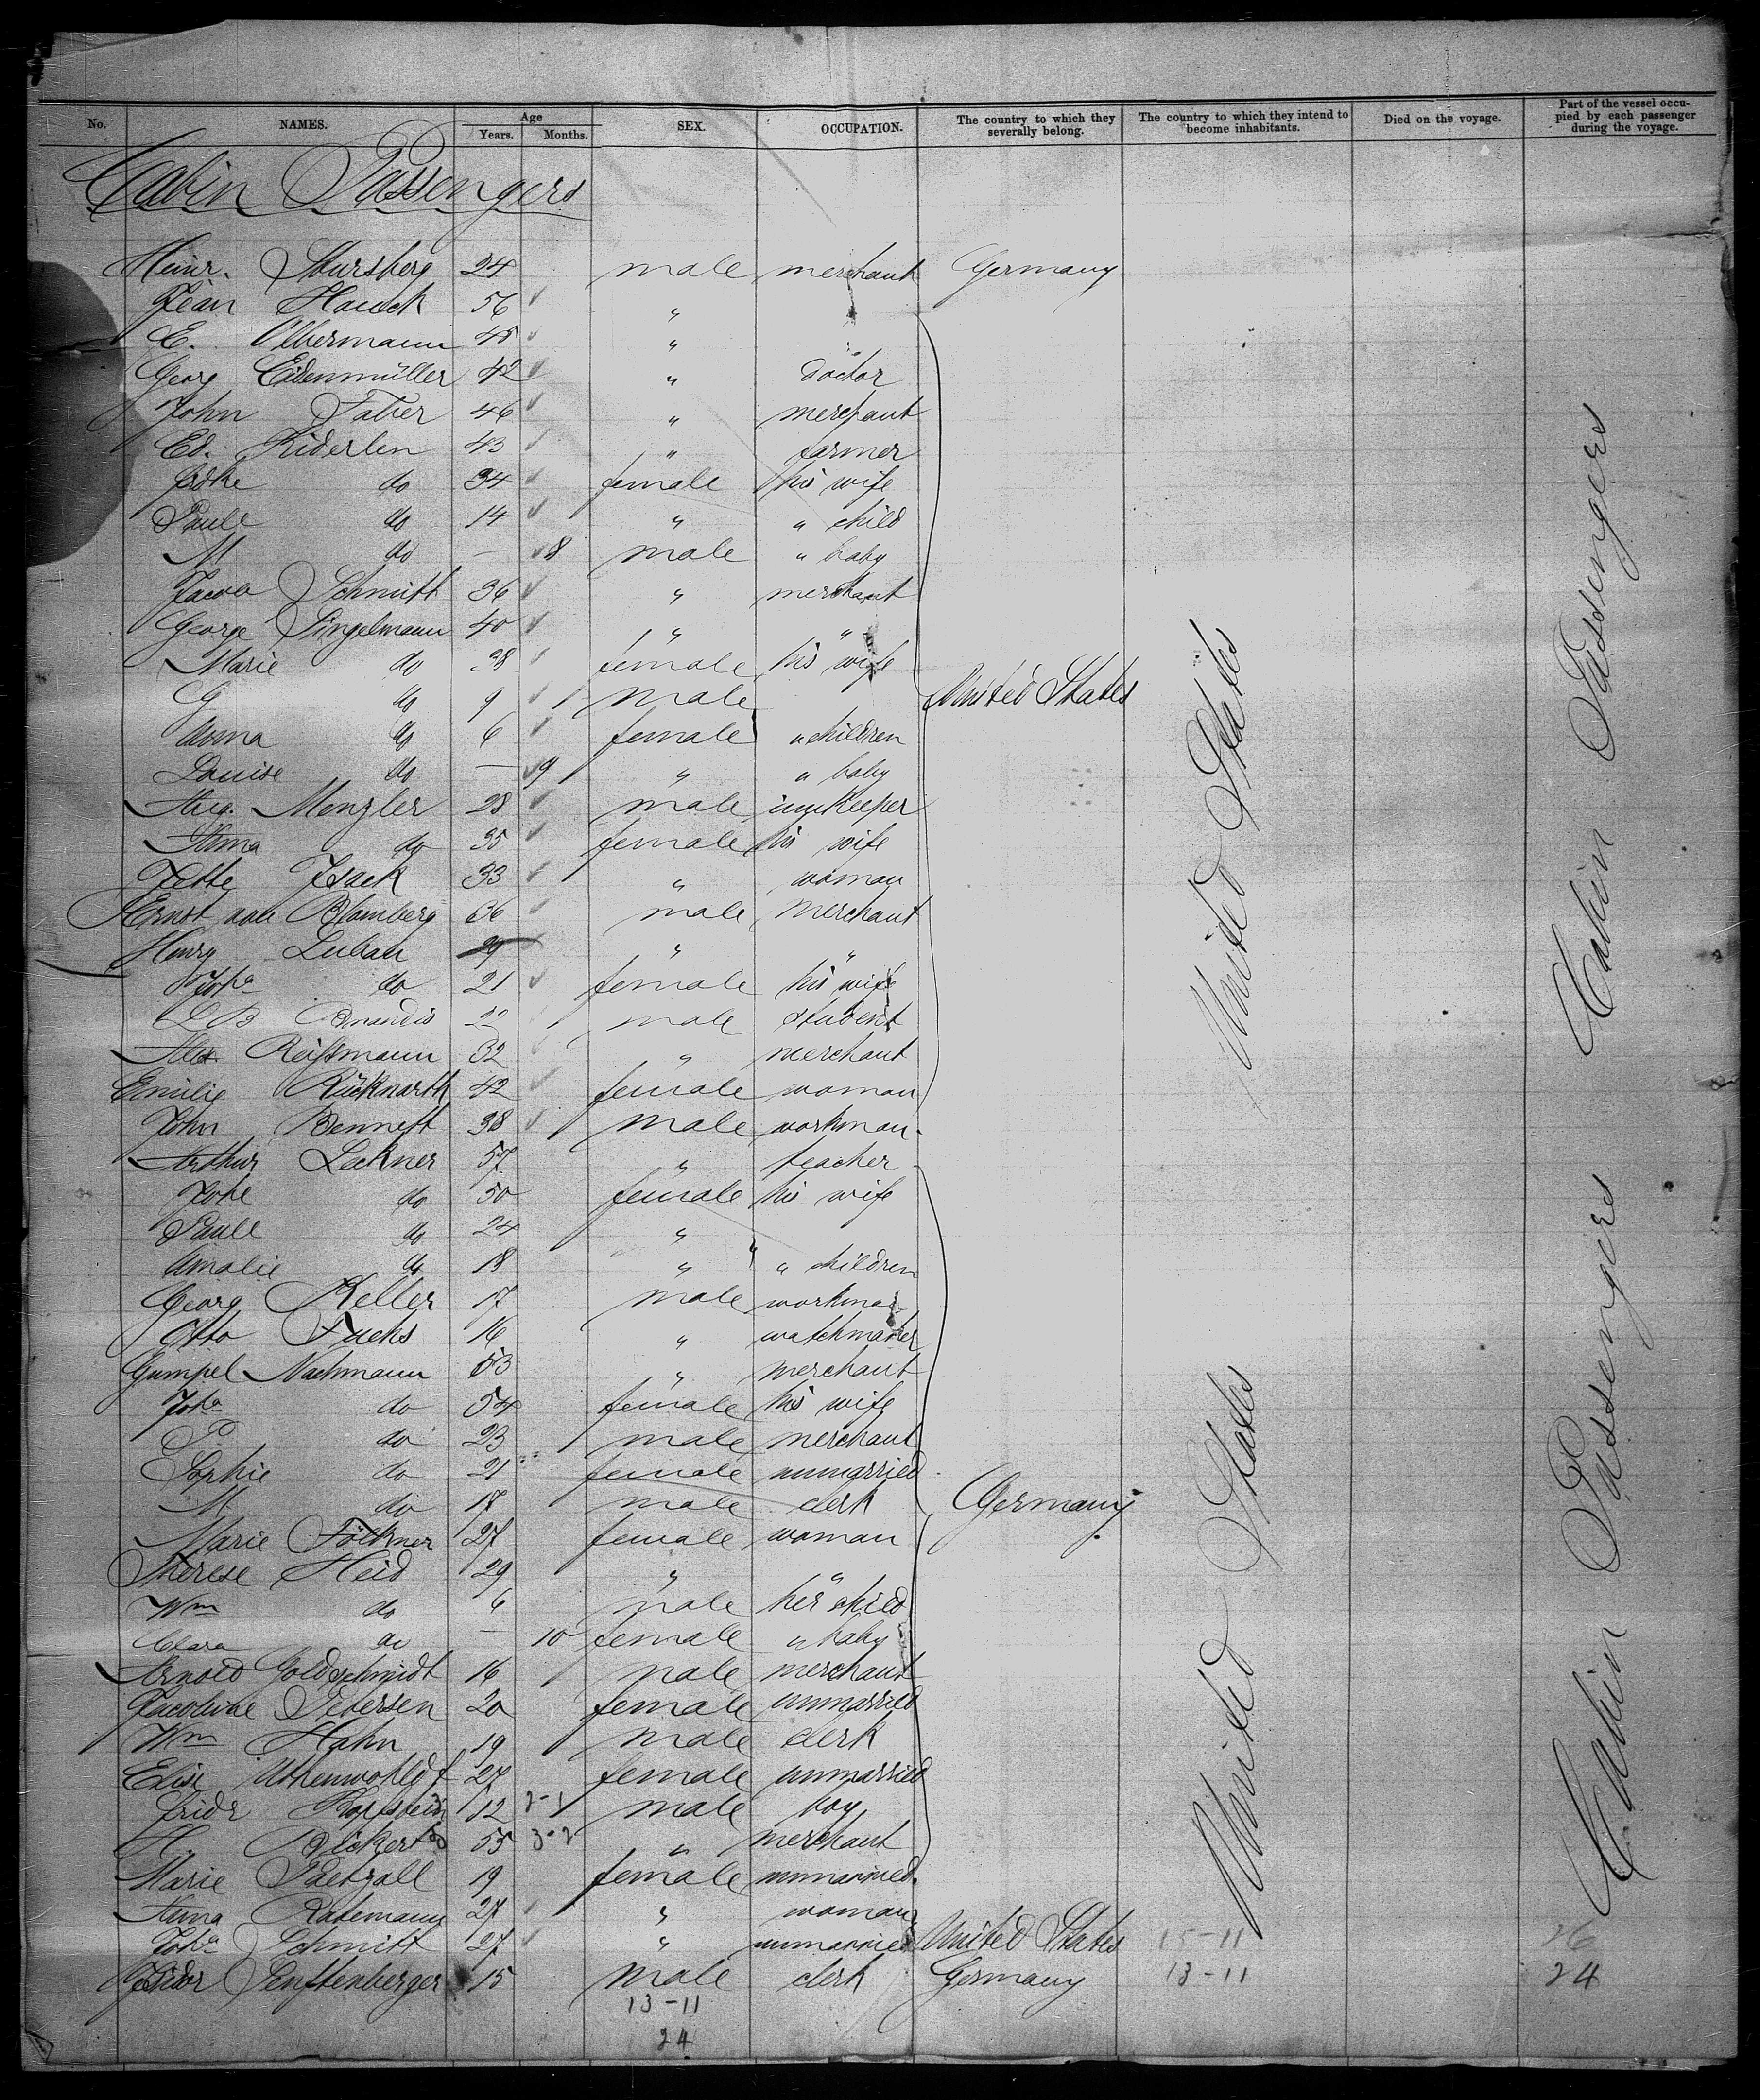 No. NAMES. Age Years. Months. SEX. OCCUPATION. The country to which they severally belong. The country to which they intend to become inhabitants. Died on the voyage. Part of the vessel occupied by each passenger during the voyage.
Cabin Passengers
Heinr. Stursberg 24 male merchant Germany
Jean Hauck 56 "
E. Olbermann 45 "
Georg Eidenmüller 42 " doctor
John Faber 46 " merchant
Ed. Kiderlen 43 " farmer
Frdke do 34 female his wife
Paule do 14 " " child
M do — 8 male " baby
Jacob Schmitt 36 " merchant
George Singelmann 40 " "
Marie do 38 female his wife
G do 9 male United States
Anna do 6 female " children
Louise do — 9 " " baby
Aug. Menzler 28 male innkeeper
Anna do 35 female his wife
Jette Isack 33 " woman
Ernst von Blomberg 36 male merchant
Henry Luban 29 " "
Joha do 21 female his wife
L B Brandis 22 male student
Alex Reißmann 32 " merchant
Emilie Rücknarth 42 female woman
John Bennett 38 male workman
Arthur Leckner 57 " teacher
Johe do 50 female his wife
Paule do 24 "
Amalie do 18 " " children
Georg Keller 17 male workman
Otto Fuchs 16 " watchmaker
Gumpel Nachmann 53 " merchant
Joha do 54 female his wife
P do 23 male merchant
Sophie do 21 female unmarried
M do 17 male clerk Germany
Marie Folkner 27 female woman
Therese Heid 29 " "
Wm do 6 male her child
Clara do — 10 female " baby
Arnold Goldschmidt 16 male merchant
Jacobine Petersen 20 female unmarried
Wm Hahn 19 male clerk
Elise 27 female unmarried
Fridr Kopfstein 12 male boy
H Bickerts 55 " merchant
Marie Paetzall 19 female unmarried
Anna Ratemann 27 " woman
Joha Schmitt 27 " unmarried United States 15-11 26
Isidor Senftenberger 15 male clerk Germany 13-11 24
13-11
24
United States
United States
Cabin Passengers
Cabin Passengers